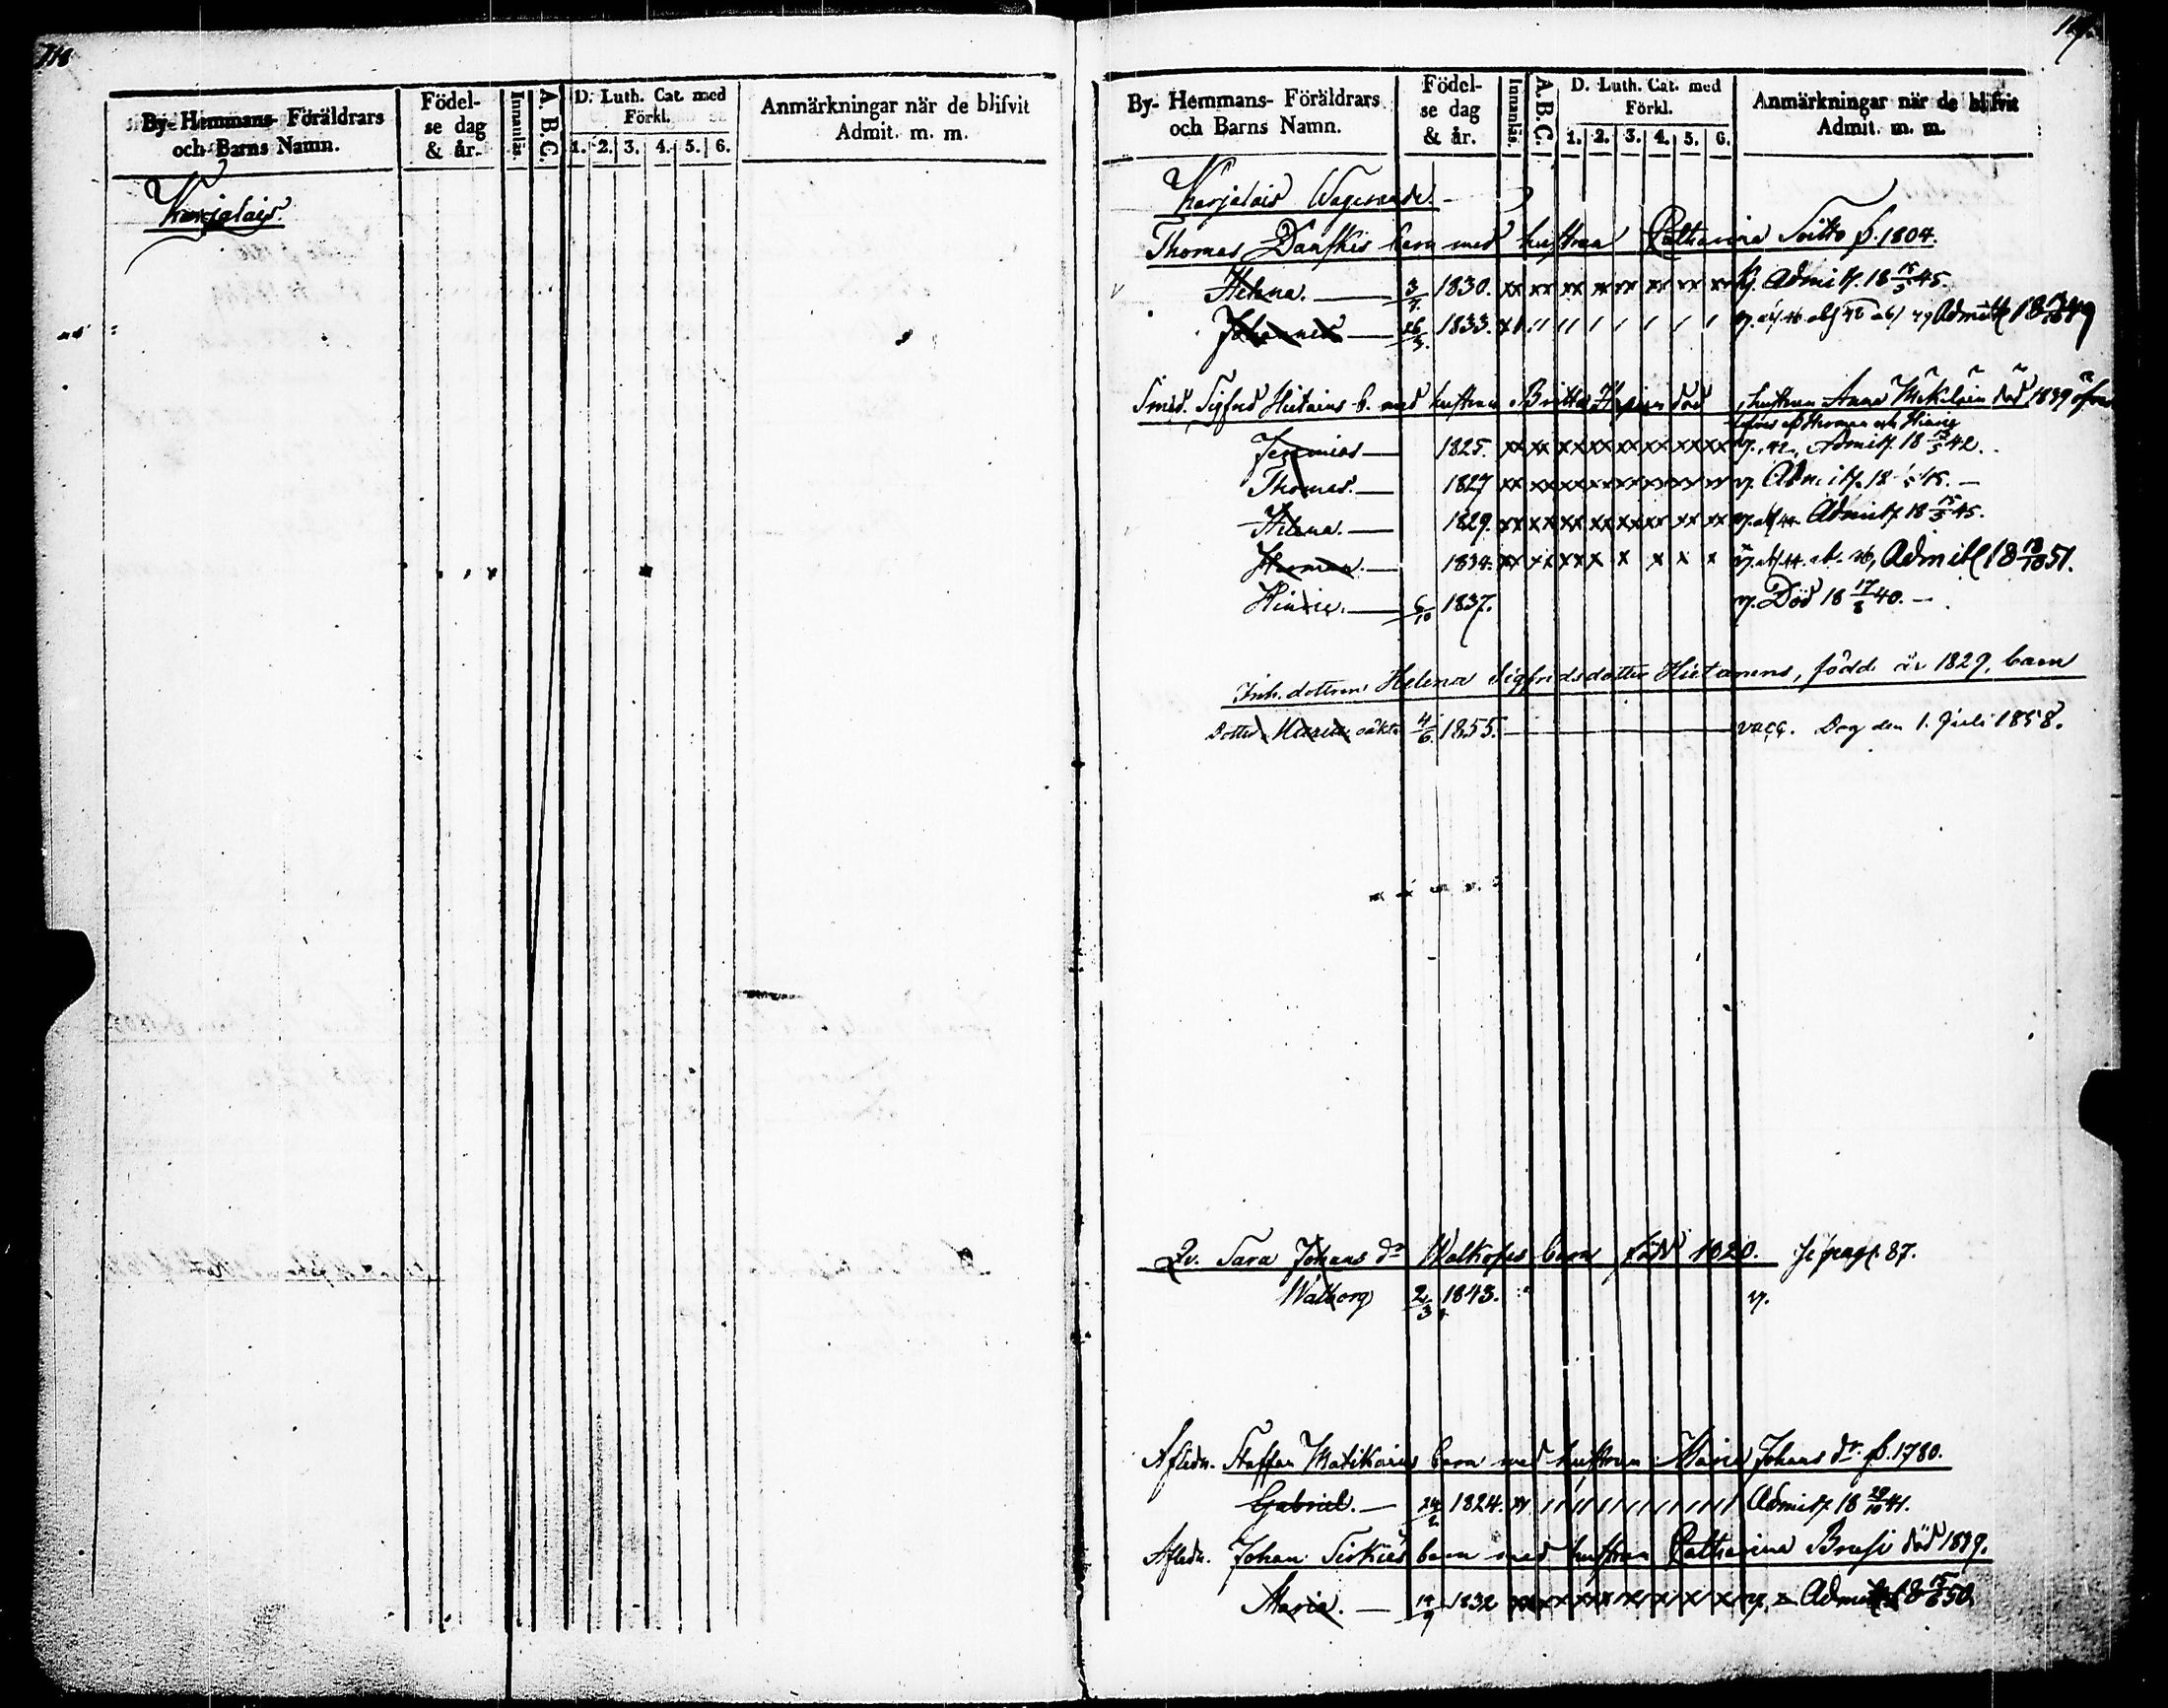 118
By- Hemmans- Föräldrars och Barns Namn.
Födel-se dag & år.
Innanläs.
A.B.C.
D. Luth. Cat. med Förkl.
1. 2. 3. 4. 5. 6.
Anmärkningar när de blifvit Admit. m. m.
Karjalais.
By- Hemmans- Föräldrars och Barns Namn.
Födel-se dag & år.
Innanläs.
A.B.C.
D. Luth. Cat. med Förkl.
1. 2. 3. 4. 5. 6.
Anmärkningar när de blifvit Admit. m. m.
Karjalais
Thomas Danskes barn med hustrun Catharina Soitto f. 1804.
Helena. 3/7 1830. xx xx xx xx xx xx xx xx Admitt. 18 15/5 45.
Johannes 26/3 1833. Admitt 49
Smed. Sigfred Hietains b. med hustrun Britta död hustrun Anna Mikilsin död 1839
Jeremias 1825. xx xx xx xx xx xx v. 42, Admitt. 18 42.
Thomas. 1827 v. Admitt. 18 45.
Helena. 1829. xx xx xx xx xx xx xx xx v. Admitt. 18 15/5 45.
Herman. 1834. Admitt 18 18/10 51.
Hinric. 6/10 1837. v. Död 18 17/8 40.
Inh. dottren Helena Sigfridsdotter Hietanens, född år 1829, barn
Dotter oäkta 4/6. 1855. vacc. Dog den 1. Juli 1858.
Sara Johans dr barn född 1820. Se pag. 87.
Walborg 2/3 1843. v.
Afledn. Staffan Matikains barn med hustrun Maria Johans dr f. 1780.
Gabriel. 24/2 1824. Admitt. 18 29/10 41.
Afledn. Johan Sirkiäs barn med hustrun Catharina Brusi död 1839.
Maria. 1832 Admitt 50